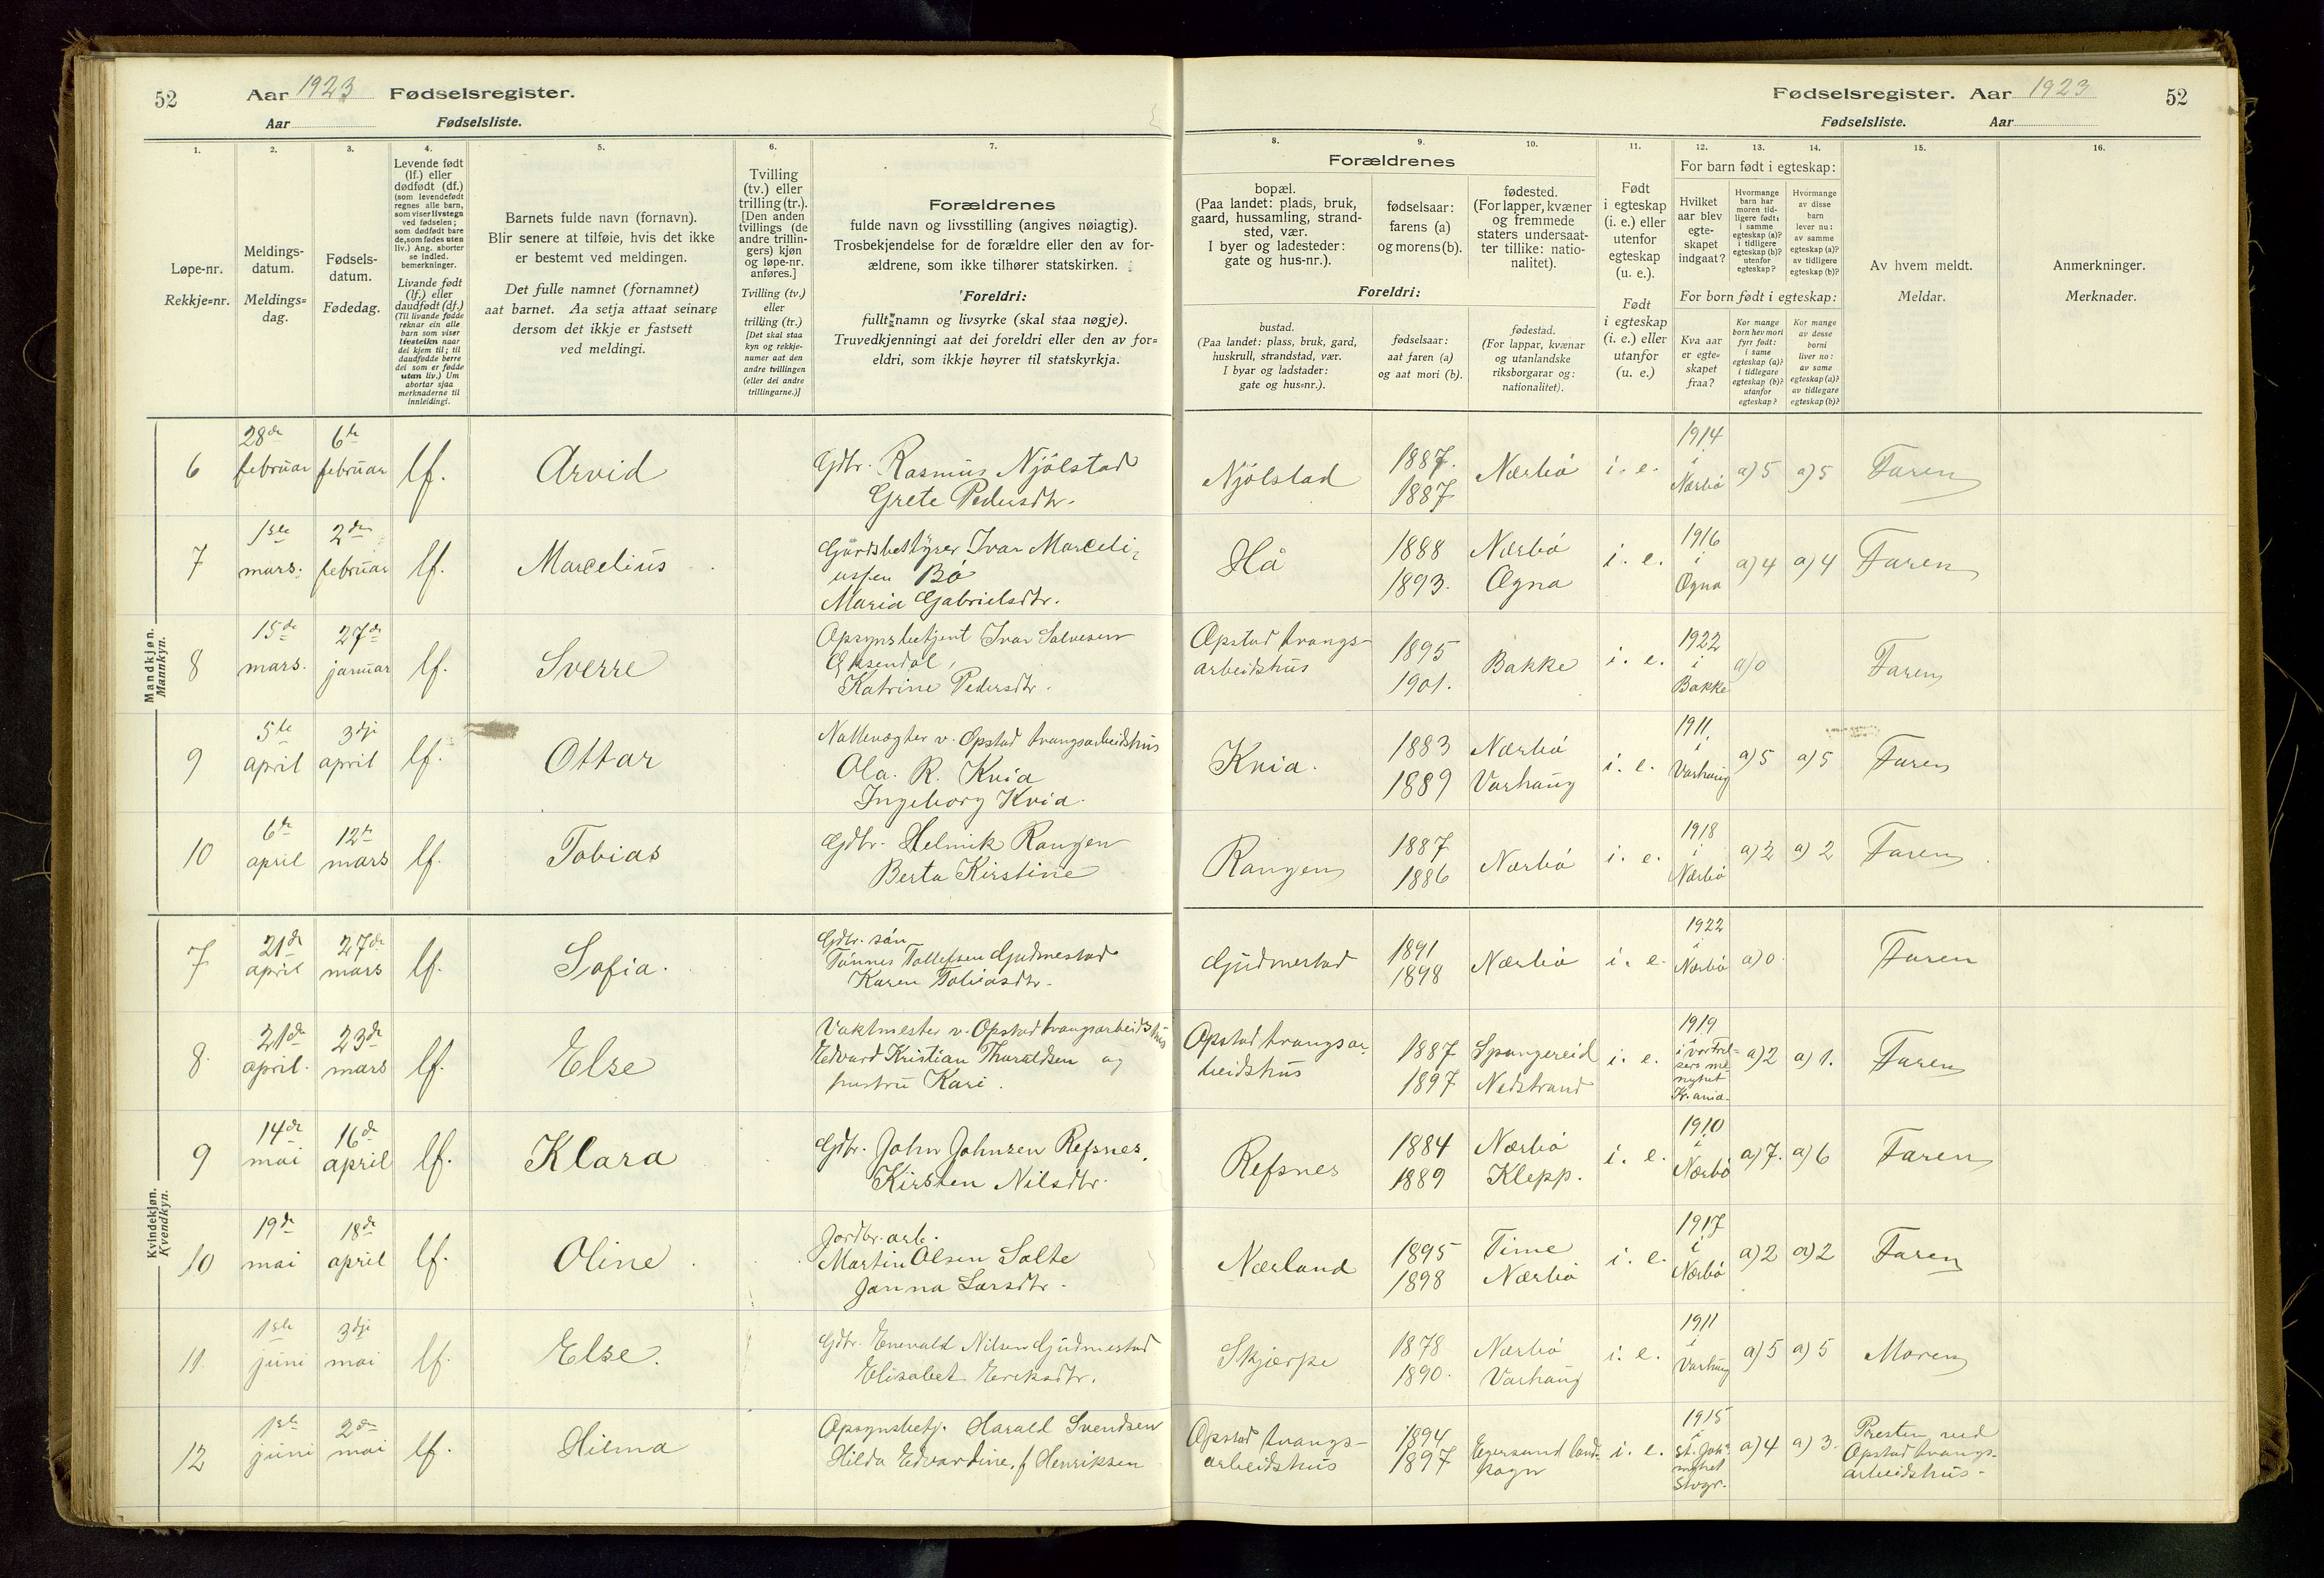 52
Aar 1923 Fødselsregister.
Aar Fødselsliste.
Fødselsregister. Aar 1923
52
Fødselsliste. Aar
1. 2. 3. 4. 5. 6. 7.
Løpe-nr.
Rekkje=nr.
Meldings-
datum.
Meldings=
dag.
Fødsels-
datum.
Fødedag.
Levende født
(lf.) eller
dødfødt (df.)
(som levendefødt
regnes alle barn,
som viser livstegn
ved fødselen;
som dødfødt bare
de, som fødes uten
liv.) Ang. aborter
se indled.
bemerkninger.
Livande født
(lf.) eller
daudfødt (df.)
(Til livande fødde
reknar ein alle
barn som viser
livsteikn naar
dei kjem til; til
daudfødde berre
dei som er fødde
utan liv.) Um
abortar sjaa
merknaderne til
innleidingi.
Barnets fulde navn (fornavn).
Blir senere at tilføie, hvis det ikke
er bestemt ved meldingen.
Det fulle namnet (fornamnet)
aat barnet. Aa setja attaat seinare
dersom det ikkje er fastsett
ved meldingi.
Tvilling
(tv.) eller
trilling (tr.).
[Den anden
tvillings (de
andre trillin-
gers) kjøn
og løpe-nr.
anføres.]
Tvilling (tv.)
eller
trilling (tr.)
[Det skal staa
kyn og rekkje-
numer aat den
andre tvillingen
(eller dei andre
trillingarne.)]
Forældrenes
fulde navn og livsstilling (angives nøiagtig).
Trosbekjendelse for de forældre eller den av for-
ældrene, som ikke tilhører statskirken.
Foreldri:
fullt namn og livsyrke (skal staa nøgje).
Truvedkjenningi aat dei foreldri eller den av for=
eldri, som ikkje høyrer til statskyrkja.
8. 9. 10. 11. 12. 13. 14. 15. 16.
Forældrenes
bopæl.
(Paa landet: plads, bruk,
gaard, hussamling, strand-
sted, vær.
I byer og ladesteder:
gate og hus-nr.).
fødselsaar:
farens (a)
og morens (b).
fødested.
(For lapper, kvæner
og fremmede
staters undersaat-
ter tillike: natio-
nalitet).
Foreldri:
bustad.
(Paa landet: plass, bruk, gard,
huskrull, strandstad, vær.
I byar og ladstader:
gate og hus=nr.).
fødselsaar:
aat faren (a)
og aat mori (b).
fødestad.
(For lappar, kvænar
og utanlandske
riksborgarar og:
nationalitet).
Født
i egteskap
(i. e.) eller
utenfor
egteskap
(u. e.).
Født
i egteskap
(i. e.) eller
utanfor
(u. e.)
For barn født i egteskap:
Hvilket
aar blev
egte-
skapet
indgaat?
Hvormange
barn har
moren tid-
ligere født:
i samme
egteskap (a)?
i tidligere
egteskap (b)?
utenfor
egteskap?
Hvormange
av disse
barn
lever nu:
av samme
egteskap (a)?
av tidligere
egteskap (b)?
For born født i egteskap:
Kva aar
er egte=
skapet
fraa?
Kor mange
born hev mori
fyrr født:
i same
egteskap (a)?
i tidlegare
egteskap (b)?
utanfor
egteskap?
Kor mange
av desse
borni
liver no:
av same
egteskap (a)?
av tidlegare
egteskap (b)?
Av hvem meldt.
Meldar.
Anmerkninger.
Merknader.
Mandkjøn.
Mannkyn.
6 28de februar 6te februar lf. Arvid Gdbr. Rasmus Njölstad
Grete Pedersdtr. Njölstad 1887. 1887 Nærbö i. e. 1914 i Nærbö a) 5 a) 5 Faren
7 1ste mars. 2den februar lf. Marcelius Gårdsbestyrer Ivar Marceli-
ussen Bö
Maria Gabrielsdtr. Hå 1888 1893. Nærbö Ogna i. e. 1916 i Ogna a) 4 a) 4 Faren
8 15de mars. 27de januar lf. Sverre Opsynsbetjent Ivar Salvesen
Katrine Pedersdtr. Opstad tvangs-
arbeidshus 1895 1901. Bakke i. e. 1922 i Bakke a) 0 Faren
9 5te april 3dje april lf. Ottar Nattevægter v. Opstad tvangsarbeidshus
Ola. R. Kvia
Ingeborg Kvia. Kvia. 1883 1889 Nærbö Varhaug i. e. 1911 i Varhaug a) 5 a) 5 Faren
10 6te april 12te mars lf. Tobias Gdbr. Helmik Rangen
Berta Kirstine Rangen 1887 1886 Nærbö i. e. 1918 i Nærbö a) 2 a) 2 Faren
Kvindekjøn.
Kvendkyn.
7 21de april 27de mars lf. Sofia. Gdbr. sön
Tönnes Tollefsen Gudmestad
Karen Tobiasdtr. Gudmestad 1891 1898 Nærbö i. e. 1922 i Nærbö a) 0. Faren
8. 21de april. 23de mars lf. Else Vaktmester v. Opstad tvangsarbeidshus
Edvard Kristian Thoraldsen og
hustru Kari. Opstad tvangsar-
beidshus 1887 1897 Spangereid Nedstrand i. e. 1919 i vor Frel-
sers me-
nighet
Kr.ania. a) 2 a) 1. Faren
9 14de mai 16de april lf. Klara Gdbr. John Johnsen Refsnes.
Kirsten Nilsdtr. Refsnes 1884 1889 Nærbö Klepp. i. e. 1910 i Nærbö a) 7. a) 6 Faren
10 19de mai 18de april lf. Oline Jordbr. arb.
Martin Olsen Salte
Janna Larsdtr. Nærland 1895 1898 Time Nærbö i. e. 1917 i Nærbö a) 2 a) 2 Faren
11. 1ste juni 3dje mai lf. Else. Gdbr. Enevald Nilsen Gudmestad
Elisabet Eriksdtr. Skjærpe 1878 1890. Nærbö Varhaug i. e. 1911 i Varhaug a) 5 a) 5 Moren
12 1ste juni 2den mai lf. Hilma Opsynsbetj. Harald Svendsen
Hilda Edvardine, f Henriksen Opstad tvangs-
arbeidshus 1894 1897 Egersund land-
sogn i. e. 1915 i St. Joh.
Stvgr. a) 4 a) 3. Presten ved
Opstad tvangs-
arbeidshus.